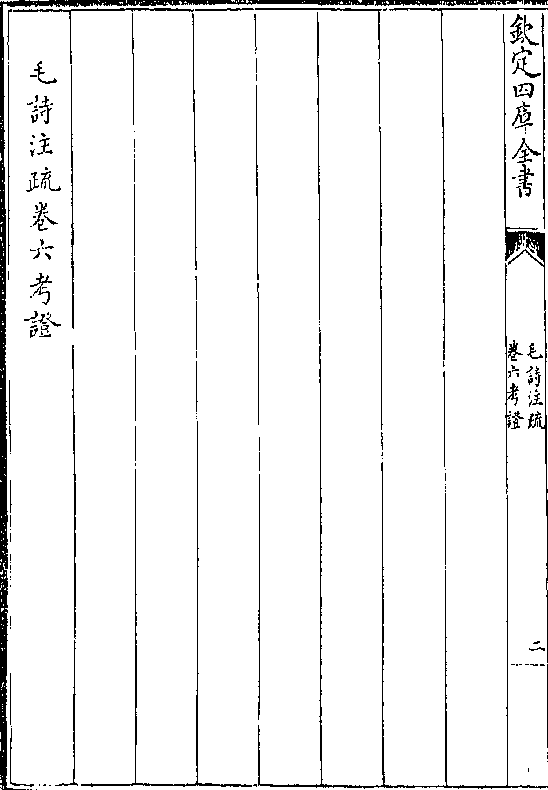 欽定四庫全書
毛詩注疏
卷六考證
二
毛詩注疏卷六考證